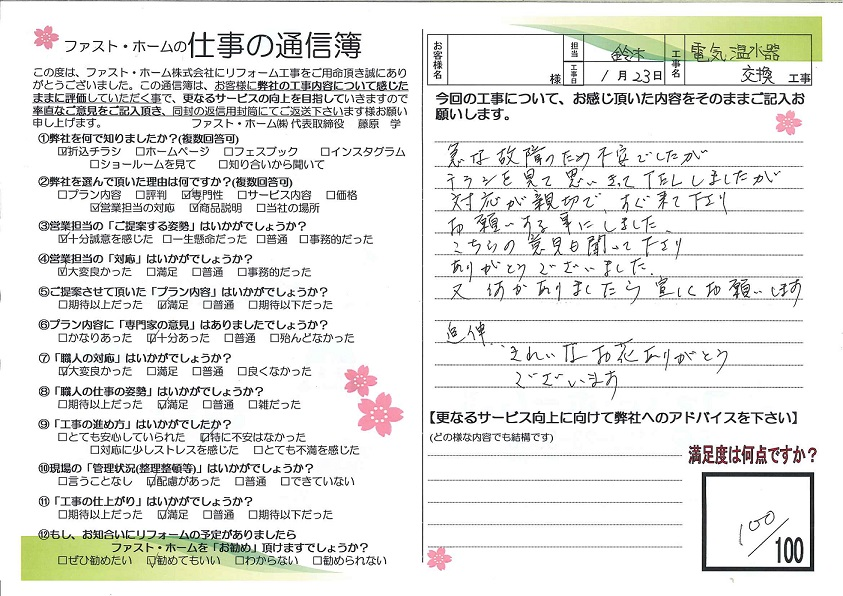 ファスト・ホームの仕事の通信簿
この度は、ファスト・ホーム株式会社にリフォーム工事をご用命頂き誠にあり
がとうございました。この通信簿は、お客様に弊社の工事内容について感じた
ままに評価していただく事で、更なるサービスの向上を目指していきますので
率直なご意見をご記入頂き、同封の返信用封筒にてご返送下さいます様お願い
申し上げます。 ファスト・ホーム㈱ 代表取締役 藤原 学
①弊社を何で知りましたか?(複数回答可)
☑折込チラシ □ホームページ □フェスブック □インスタグラム
□ショールームを見て □知り合いから聞いて
②弊社を選んで頂いた理由は何ですか?(複数回答可)
□プラン内容 □評判 ☑専門性 □サービス内容 □価格
☑営業担当の対応 ☑商品説明 □当社の場所
③営業担当の「ご提案する姿勢」はいかがでしょうか?
☑十分誠意を感じた □一生懸命だった □普通 □事務的だった
④営業担当の「対応」はいかがでしょうか?
☑大変良かった □満足 □普通 □事務的だった
⑤ご提案させて頂いた「プラン内容」はいかがでしょうか?
□期待以上だった ☑満足 □普通 □期待以下だった
⑥プラン内容に「専門家の意見」はありましたでしょうか?
□かなりあった ☑十分あった □普通 □殆んどなかった
⑦「職人の対応」はいかがでしょうか?
☑大変良かった □満足 □普通 □良くなかった
⑧「職人の仕事の姿勢」はいかがでしょうか?
□期待以上だった ☑満足 □普通 □雑だった
⑨「工事の進め方」はいかがでしたか?
□とても安心していられた ☑特に不安はなかった
□対応に少しストレスを感じた □とても不満を感じた
⑩現場の「管理状況(整理整頓等)」はいかがでしょうか?
□言うことなし ☑配慮があった □普通 □できていない
⑪「工事の仕上がり」はいかがでしょうか?
□期待以上だった ☑満足 □普通 □期待以下だった
⑫もし、お知合いにリフォームの予定がありましたら
ファスト・ホームを「お勧め」頂けますでしょうか?
□ぜひ勧めたい ☑勧めてもいい □わからない □勧められない
お客様名 様 担当 鈴木 工事名 電気温水器
工事日 1月23日 交換 工事
今回の工事について、お感じ頂いた内容をそのままご記入お
願いします。
急な故障のため不安でしたが
チラシを見て思いきってTELしましたが
対応が親切で、すぐ来て下さり
お願いする事にしました。
こちらの意見も聞いて下さり
ありがとうございました。
又何かありましたら宜しくお願いします
追伸
きれいなお花ありがとう
ございます
【更なるサービス向上に向けて弊社へのアドバイスを下さい】
(どの様な内容でも結構です)
満足度は何点ですか?
100/100